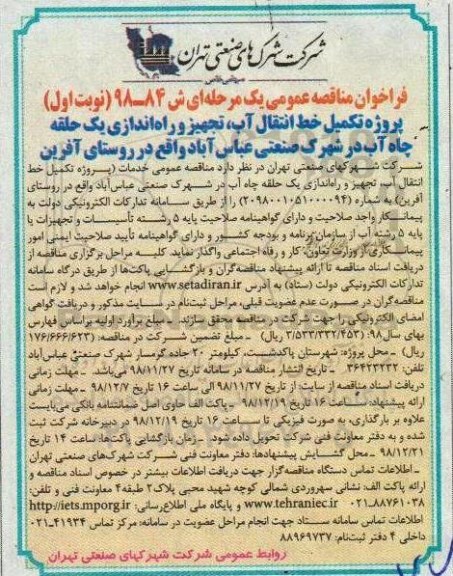 شرکت شهرک‌های صنعتی تهران
(سهامی خاص)
فراخوان مناقصه عمومی یک مرحله‌ای ش ۸۴-۹۸ (نوبت اول)
پروژه تکمیل خط انتقال آب، تجهیز و راه‌اندازی یک حلقه
چاه آب در شهرک صنعتی عباس‌آباد واقع در روستای آفرین
شرکت شهرکهای صنعتی تهران در نظر دارد مناقصه عمومی خدمات (پروژه تکمیل خط
انتقال آب، تجهیز و راه‌اندازی یک حلقه چاه آب در شهرک صنعتی عباس‌آباد واقع در روستای
آفرین) به شماره (۲۰۹۸۰۰۱۰۵۱۰۰۰۰۹۴) را از طریق سامانه تدارکات الکترونیکی دولت به
پیمانکار واجد صلاحیت و دارای گواهینامه صلاحیت پایه ۵ رشته تأسیسات و تجهیزات یا
پایه ۵ رشته آب از سازمان برنامه و بودجه کشور و دارای گواهینامه تأیید صلاحیت ایمنی امور
پیمانکاری از وزارت تعاون، کار و رفاه اجتماعی واگذار نماید. کلیه مراحل برگزاری مناقصه از
دریافت اسناد مناقصه تا ارائه پیشنهاد مناقصه‌گران و بازگشایی پاکت‌ها از طریق درگاه سامانه
تدارکات الکترونیکی دولت (ستاد) به آدرس www.setadiran.ir انجام خواهد شد و لازم است
مناقصه‌گران در صورت عدم عضویت قبلی، مراحل ثبت‌نام در سایت مذکور و دریافت گواهی
امضای الکترونیکی را جهت شرکت در مناقصه محقق سازند. - مبلغ برآورد اولیه براساس فهارس
بهای سال ۹۸: (۳/۵۳۳/۳۳۲/۴۵۳ ریال) - مبلغ تضمین شرکت در مناقصه: (۱۷۶/۶۶۶/۶۲۳
ریال) - محل پروژه: شهرستان پاکدشت، کیلومتر ۲۰ جاده گرمسار شهرک صنعتی عباس‌آباد
تلفن: ۳۶۴۲۳۲۳۲ - تاریخ انتشار مناقصه در سامانه تاریخ ۹۸/۱۱/۲۷ می‌باشد. - مهلت زمانی
دریافت اسناد مناقصه از سایت: از تاریخ ۹۸/۱۱/۲۷ الی ساعت ۱۶ تاریخ ۹۸/۱۲/۷ - مهلت زمانی
ارائه پیشنهاد: ساعت ۱۶ تاریخ ۹۸/۱۲/۱۹ - پاکت الف حاوی اصل ضمانتنامه بانکی می‌بایست
علاوه بر بارگذاری، به صورت فیزیکی تا ساعت ۱۶ تاریخ ۹۸/۱۲/۱۹ در دبیرخانه شرکت ثبت
شده و به دفتر معاونت فنی شرکت تحویل داده شود. - زمان بازگشایی پاکت‌ها: ساعت ۱۴ تاریخ
۹۸/۱۲/۲۱ - محل گشایش پیشنهادها: دفتر معاونت فنی شرکت شهرک‌های صنعتی تهران
- اطلاعات تماس دستگاه مناقصه‌گزار جهت دریافت اطلاعات بیشتر در خصوص اسناد مناقصه و
ارائه پاکت الف: نشانی سهروردی شمالی کوچه شهید محبی پلاک ۲ طبقه ۴ معاونت فنی و تلفن:
۰۲۱-۸۸۷۶۱۰۳۸ www.tehraniec.ir و پایگاه ملی اطلاع‌رسانی: http://iets.mporg.ir
اطلاعات تماس سامانه ستاد جهت انجام مراحل عضویت در سامانه: مرکز تماس ۴۱۹۳۴-۰۲۱
داخلی ۴ دفتر ثبت‌نام: ۸۸۹۶۹۷۳۷
روابط عمومی شرکت شهرکهای صنعتی تهران